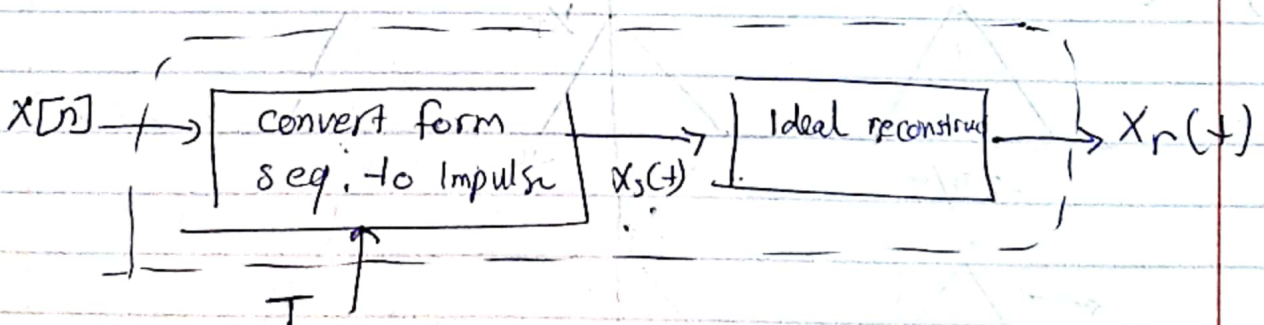 x[n]
convert form
seq. to Impulse
xs(t)
Ideal reconstruc
xr(t)
T